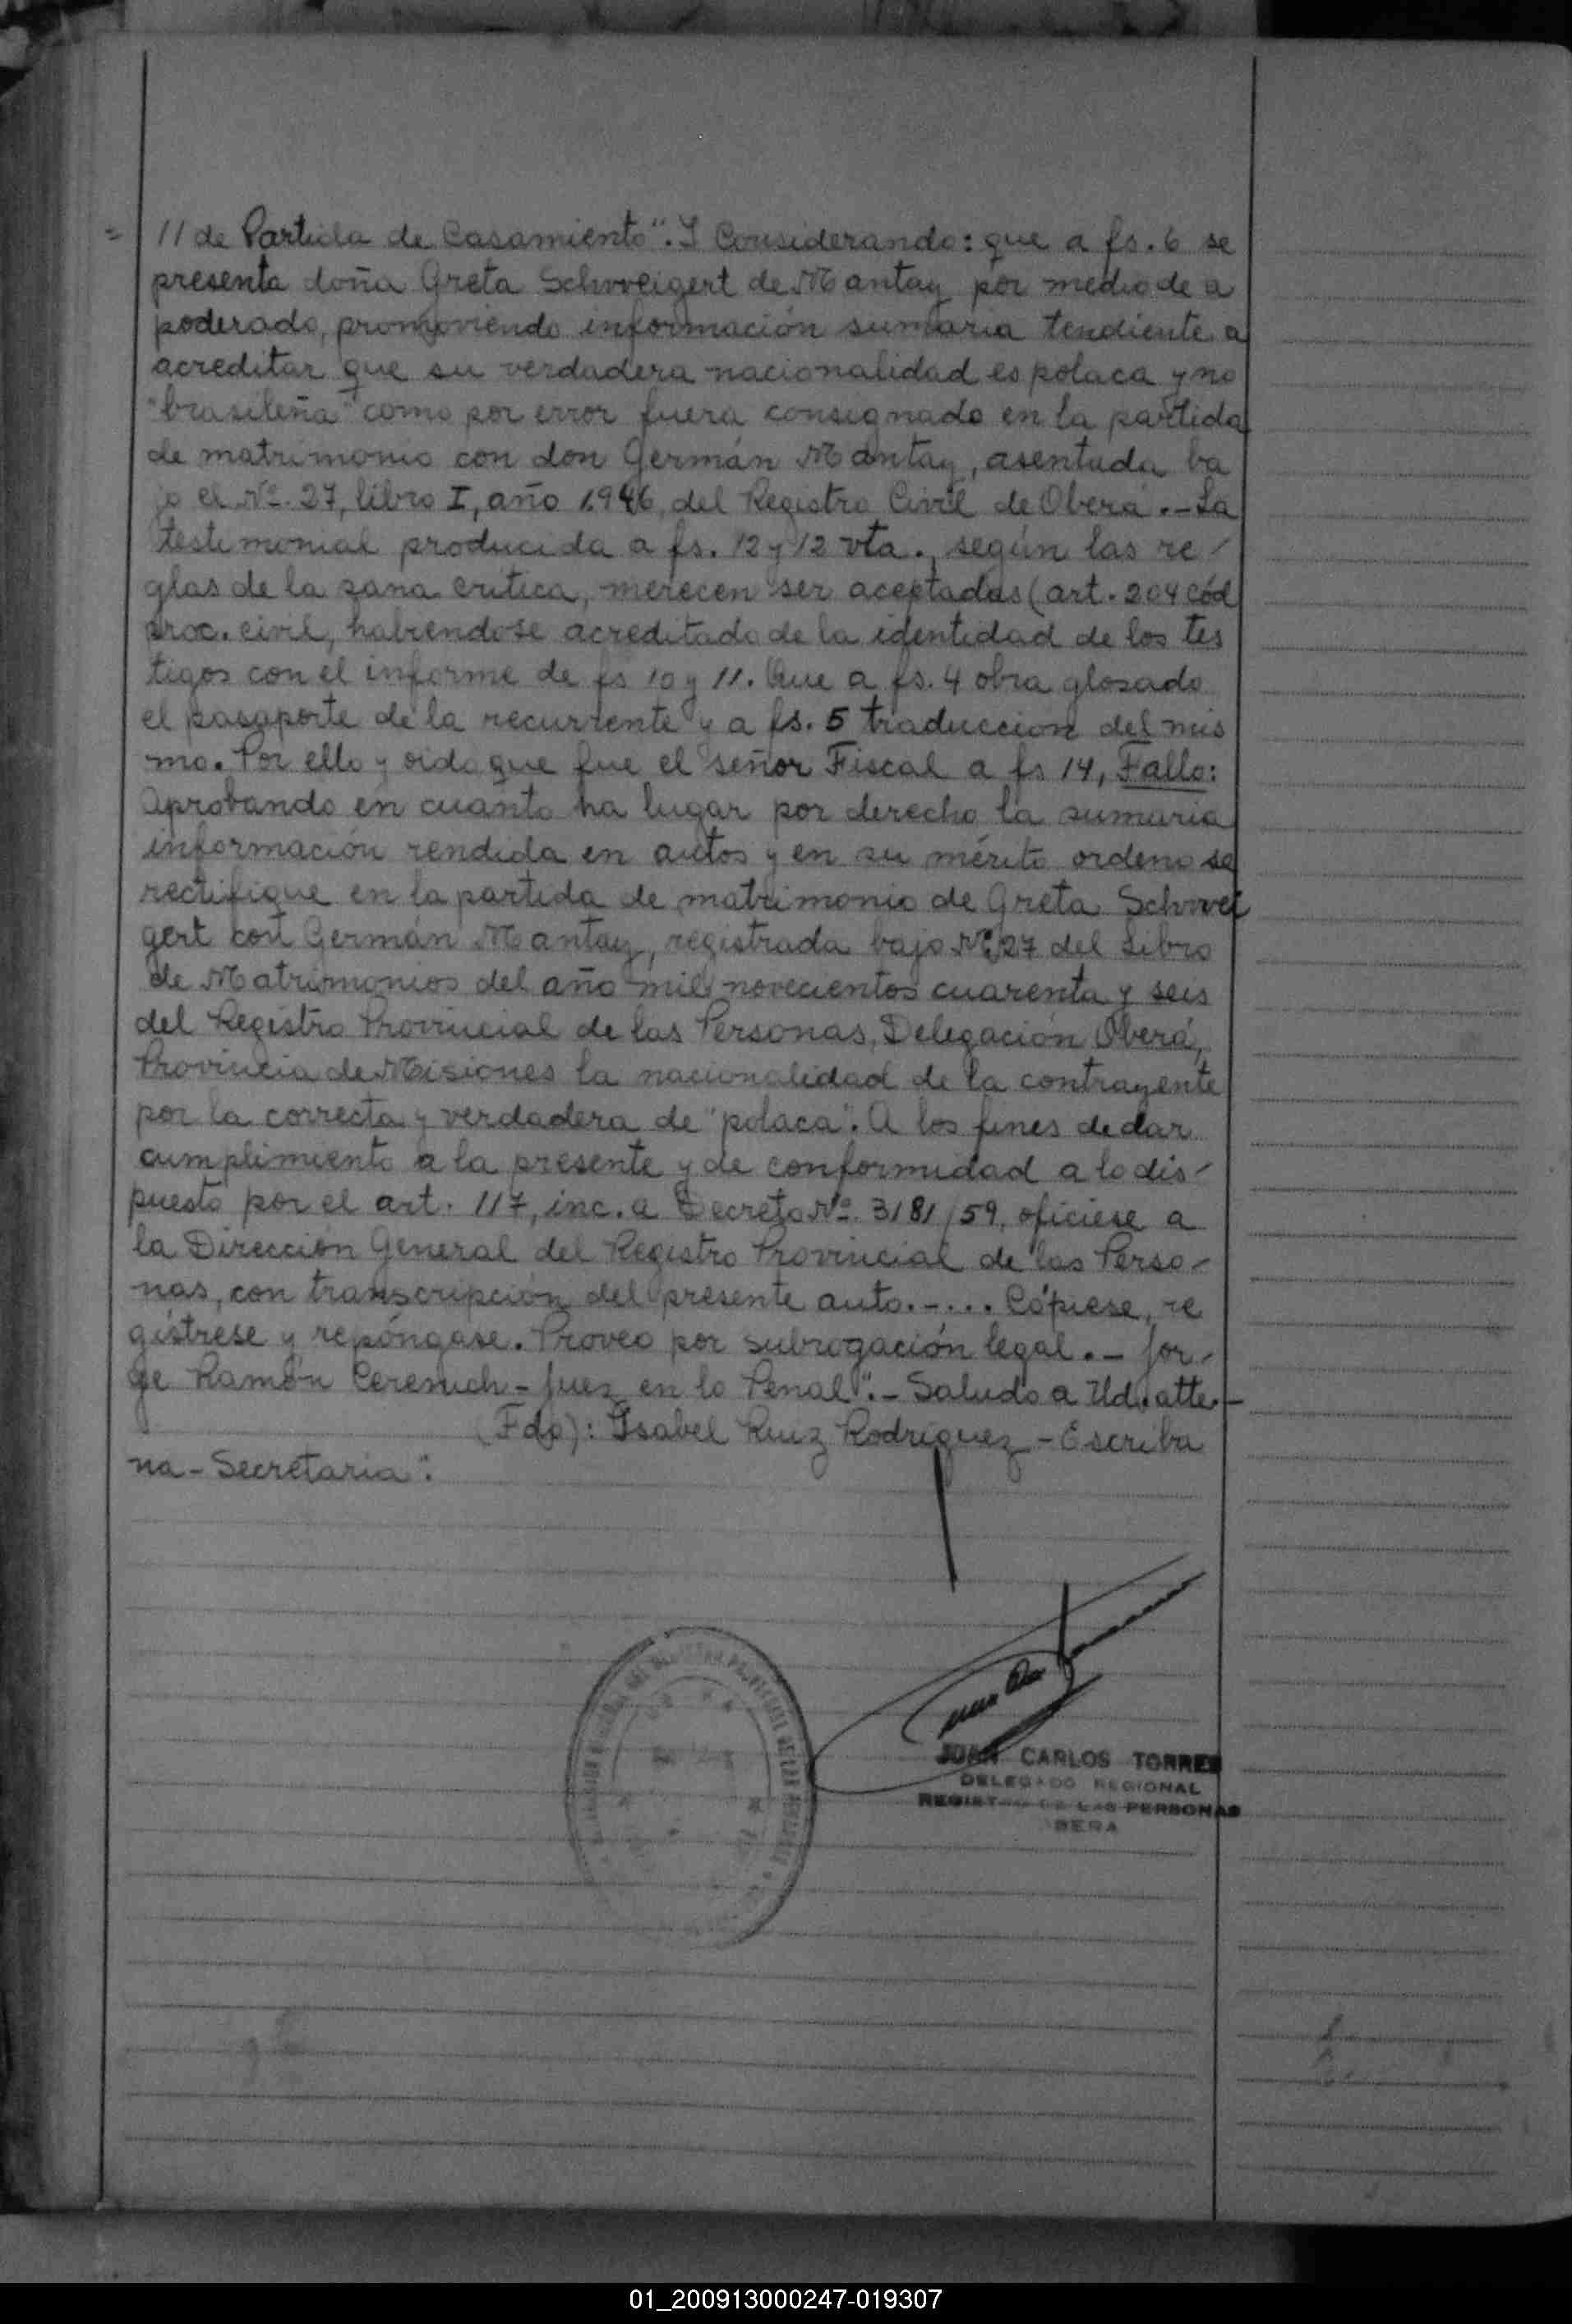 = // de Partida de Casamiento". Y Considerando: que a fs. 6 se
presenta doña Greta Schweigert de Mantay por medio de a
poderado, promoviendo información sumaria tendiente a
acreditar que su verdadera nacionalidad es polaca y no
"brasileña" como por error fuera consignado en la partida
de matrimonio con don Germán Mantay, asentada ba
jo el Nº. 27, libro I, año 1.946, del Registro Civil de Oberá.-La
testimonial producida a fs. 12 y 12 vta., según las re-
glas de la sana crítica, merecen ser aceptadas (art. 204 Cód
proc. civil, habiéndose acreditado de la identidad de los tes
tigos con el informe de fs 10 y 11. Que a fs. 4 obra glosado
el pasaporte de la recurrente y a fs. 5 traduccion del mis
mo. Por ello y oido que fue el señor Fiscal a fs 14, Fallo:
Aprobando en cuanto ha lugar por derecho la sumaria
información rendida en autos y en su mérito ordeno se
rectifique en la partida de matrimonio de Greta Schwei
gert con Germán Mantay, registrada bajo Nº 27 del Libro
de Matrimonios del año mil novecientos cuarenta y seis
del Registro Provincial de las Personas, Delegación Oberá,
Provincia de Misiones la nacionalidad de la contrayente
por la correcta y verdadera de "polaca". A los fines de dar
cumplimiento a la presente y de conformidad a lo dis-
puesto por el art. 117, inc. a Decreto Nº. 3181/59, ofíciese a
la Dirección General del Registro Provincial de las Perso-
nas, con transcripción del presente auto.-... Cópiese, re
gístrese y repóngase. Proveo por subrogación legal.- Jor-
ge Ramón Ceresuch - Juez en lo Penal".- Saludo a Ud. atte.-
(Fdo): Isabel Ruiz Rodriguez - Escriba
na - Secretaria".
JUAN CARLOS TORRES
DELEGADO REGIONAL
REGISTRO DE LAS PERSONAS
OBERA
01_200913000247-019307